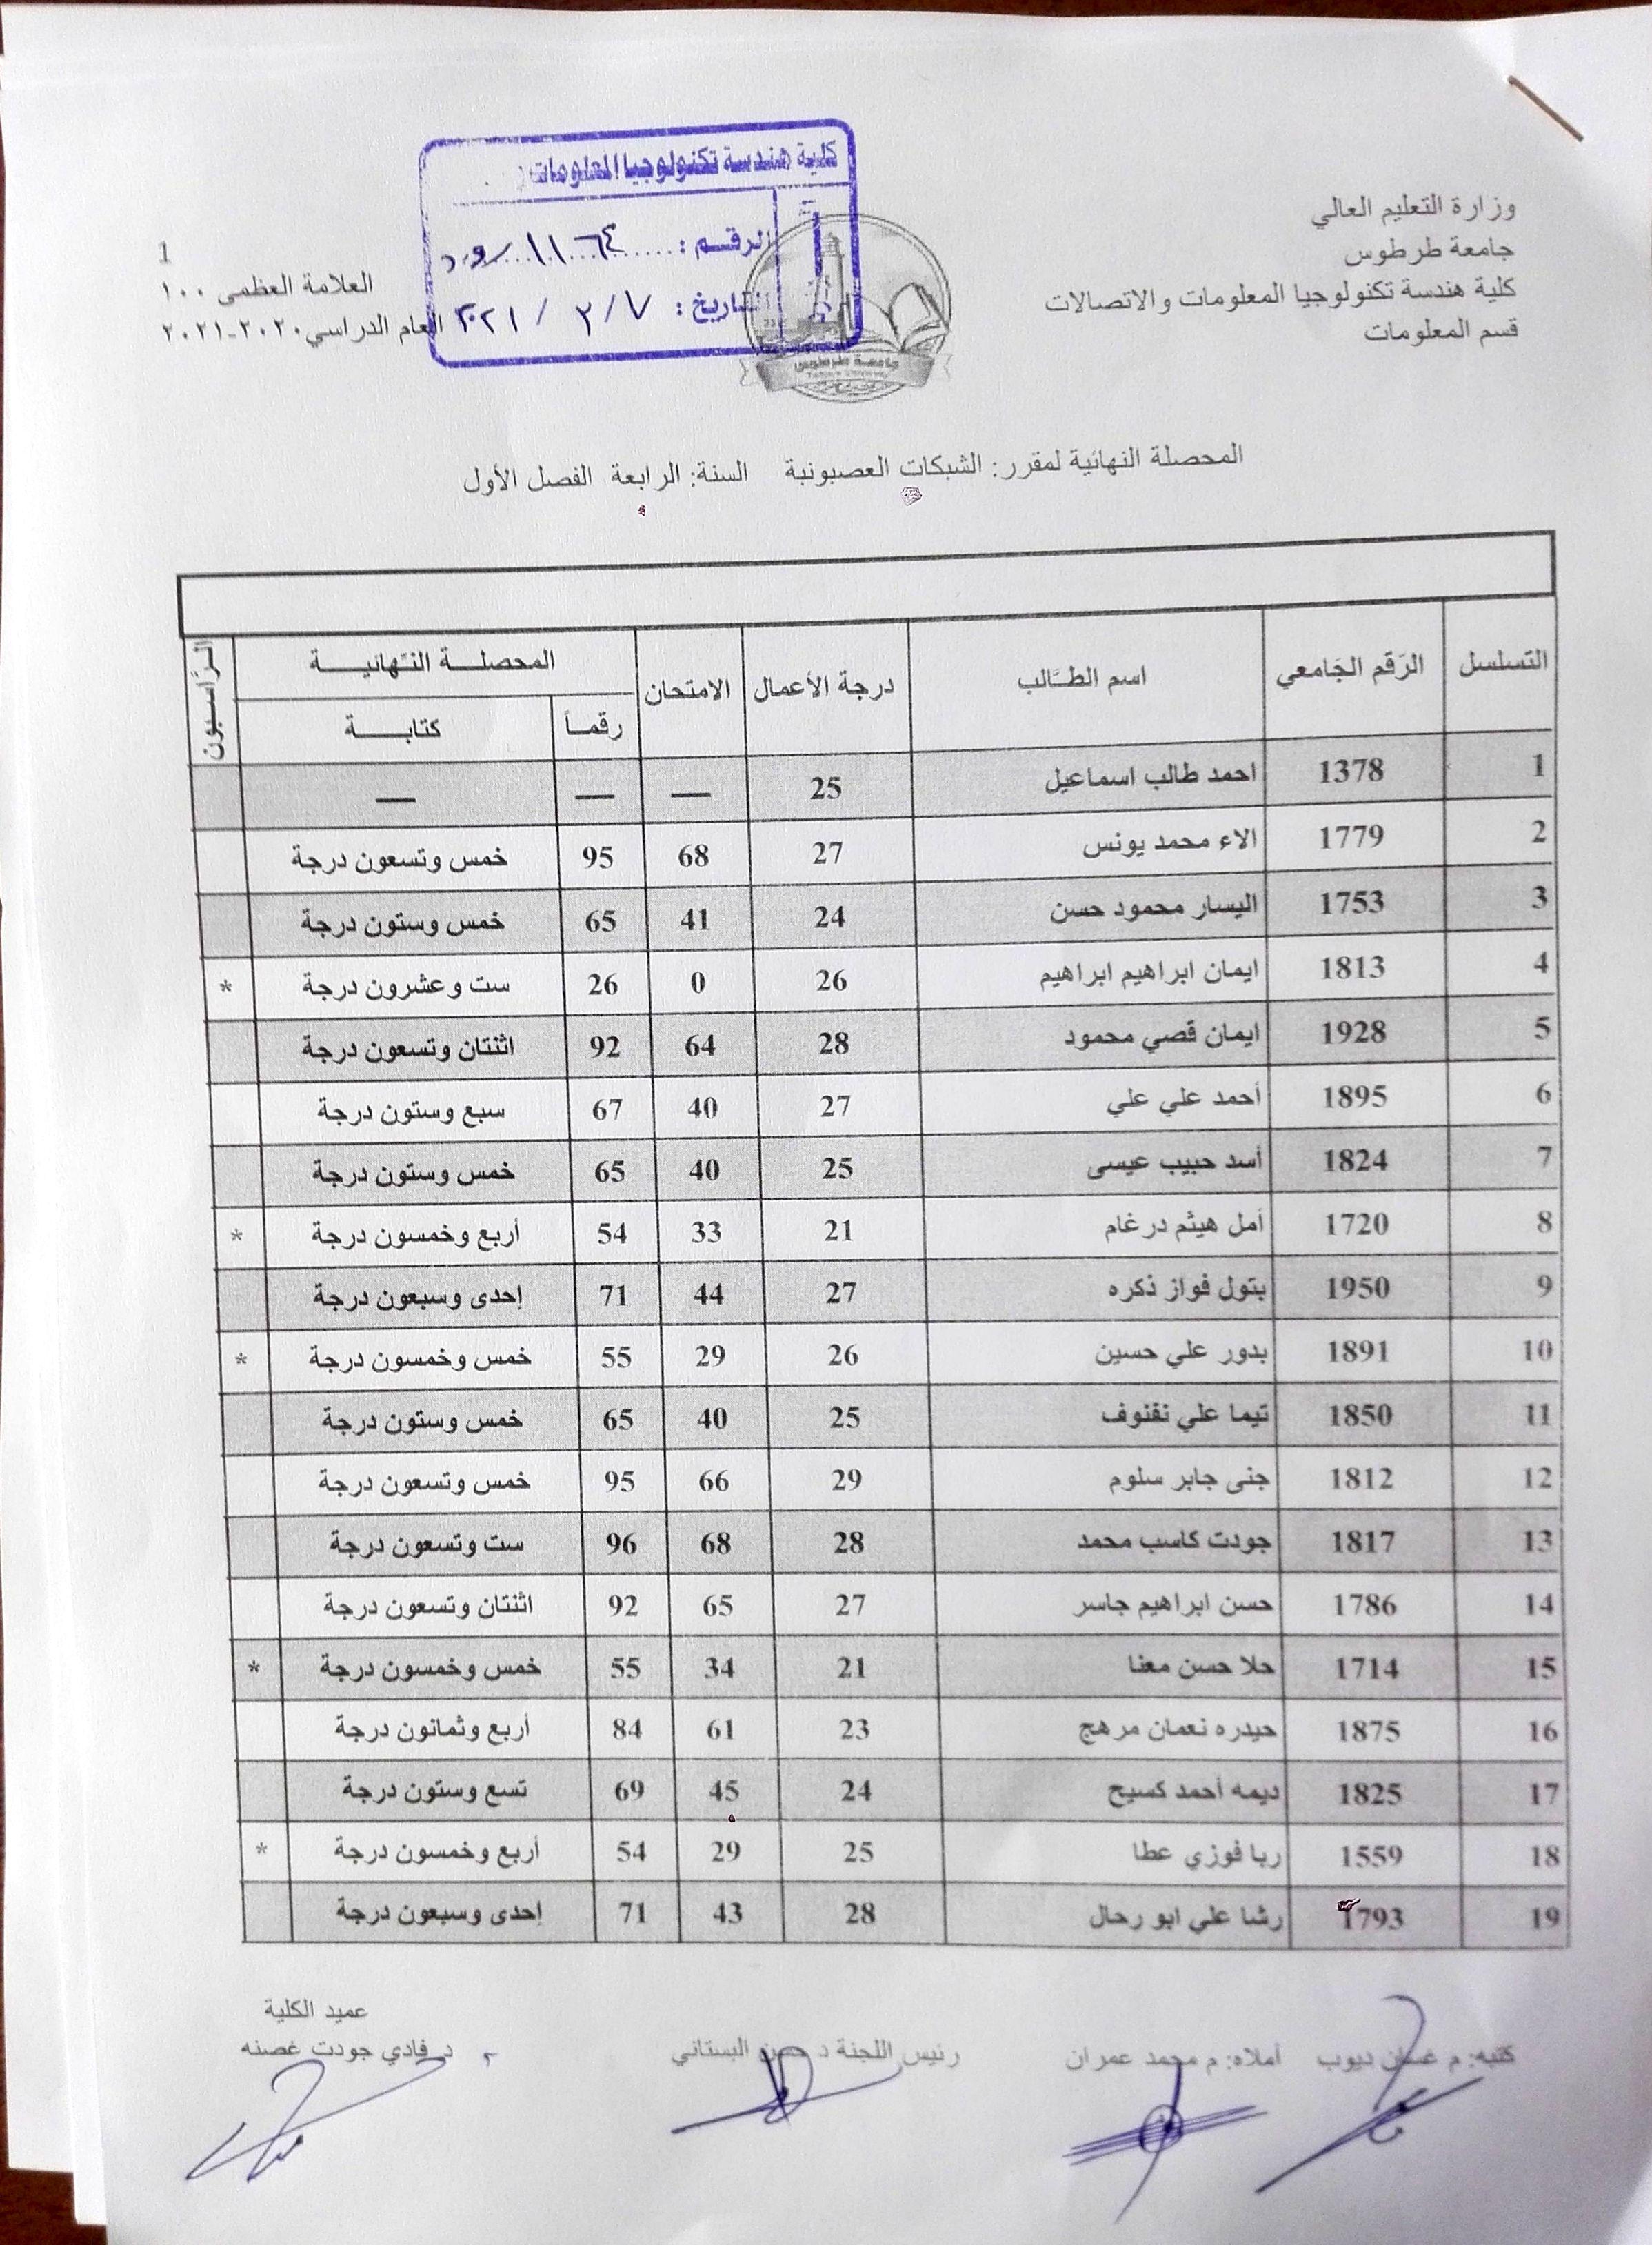 كلية هندسة تكنولوجيا المعلومات
الرقم: ١١٦٤
التاريخ: ٧ / ٢ / ٢٠٢١
وزارة التعليم العالي
جامعة طرطوس
كلية هندسة تكنولوجيا المعلومات والاتصالات
قسم المعلومات
1
العلامة العظمى ١٠٠
العام الدراسي ٢٠٢٠-٢٠٢١
جامعة طرطوس
المحصلة النهائية لمقرر: الشبكات العصبونية السنة: الرابعة الفصل الأول
التسلسل الرقم الجامعي اسم الطالب درجة الأعمال الامتحان المحصلة النهائية الراسبون
رقماً كتابة
1 1378 احمد طالب اسماعيل 25 — — —
2 1779 الاء محمد يونس 27 68 95 خمس وتسعون درجة
3 1753 اليسار محمود حسن 24 41 65 خمس وستون درجة
4 1813 ايمان ابراهيم ابراهيم 26 0 26 ست وعشرون درجة *
5 1928 ايمان قصي محمود 28 64 92 اثنتان وتسعون درجة
6 1895 أحمد علي علي 27 40 67 سبع وستون درجة
7 1824 أسد حبيب عيسى 25 40 65 خمس وستون درجة
8 1720 أمل هيثم درغام 21 33 54 أربع وخمسون درجة *
9 1950 بتول فواز ذكره 27 44 71 إحدى وسبعون درجة
10 1891 بدور علي حسين 26 29 55 خمس وخمسون درجة *
11 1850 تيما علي نقنوف 25 40 65 خمس وستون درجة
12 1812 جنى جابر سلوم 29 66 95 خمس وتسعون درجة
13 1817 جودت كاسب محمد 28 68 96 ست وتسعون درجة
14 1786 حسن ابراهيم جاسر 27 65 92 اثنتان وتسعون درجة
15 1714 حلا حسن معنا 21 34 55 خمس وخمسون درجة *
16 1875 حيدره نعمان مرهج 23 61 84 أربع وثمانون درجة
17 1825 ديمه أحمد كسيح 24 45 69 تسع وستون درجة
18 1559 ربا فوزي عطا 25 29 54 أربع وخمسون درجة *
19 1793 رشا علي ابو رحال 28 43 71 إحدى وسبعون درجة
كتبه: م غسان ديوب أملاه: م محمد عمران رئيس اللجنة د حسن البستاني
عميد الكلية
د. فادي جودت غصنه